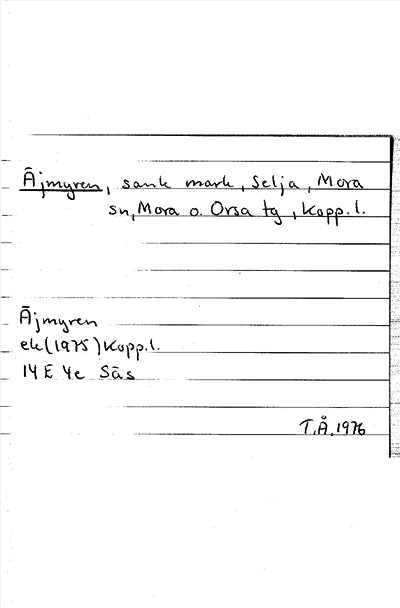 Äjmyren, sank mark, Selja, Mora
sn, Mora o. Orsa tg, Kopp.l.
Äjmyren
ek (1975) Kopp.l.
14 E 4e Säs
T.Å. 1976